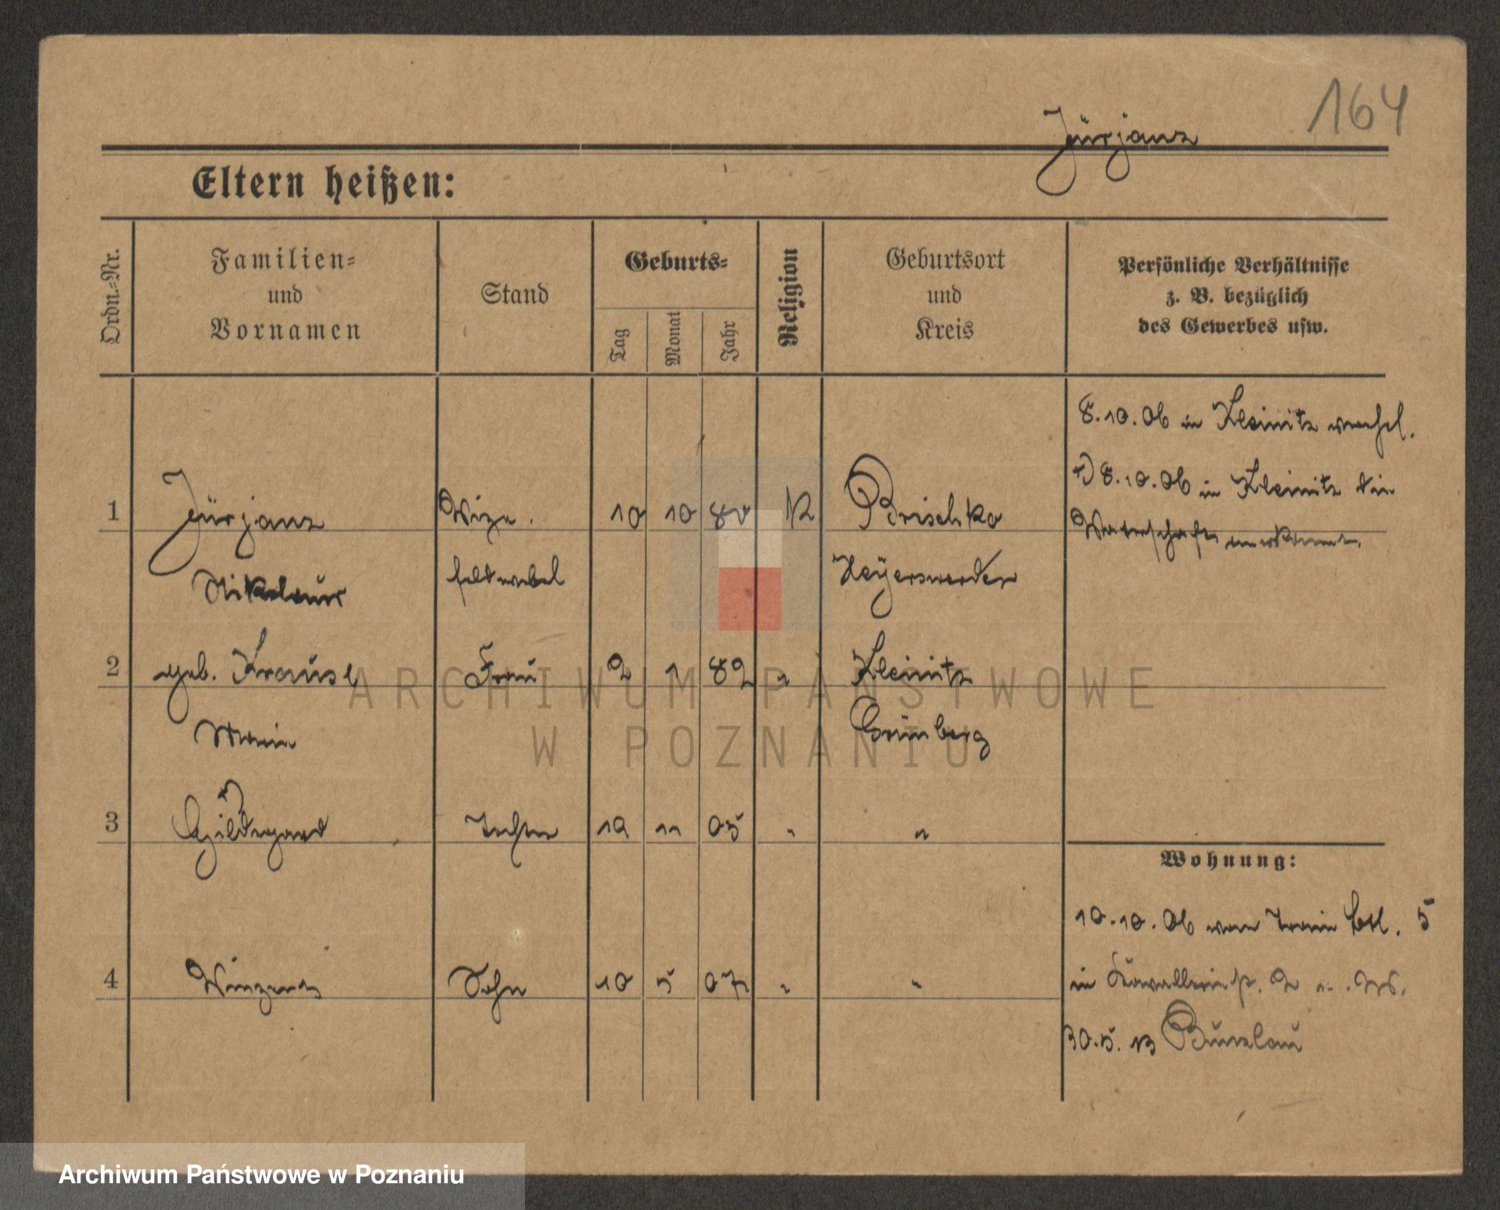 164
Jürjanz
Eltern heißen:
Ordn.-Nr.
Familien-
und
Vornamen
Stand
Geburts-
Tag
Monat
Jahr
Religion
Geburtsort
und
Kreis
Persönliche Verhältnisse
z. B. bezüglich
des Gewerbes usw.
8.10.06 in Kleinitz verehel.
8.10.06 in Kleinitz die
Vaterschaft anerkannt.
1 Jürjanz Vize. 10 10 80 K Brischko
Nikolaus feldwebel Heyerswerder
2 geb. Krause Frau 2 1 82 " Kleinitz
Maria Grünberg
3 Hildegard Tochter 12 11 05 " "
4 Vinzenz Sohn 10 5 07 " "
Wohnung:
10.10.06 vom Train Btl. 5
in
30.5.13 Bunzlau
ARCHIWUM PAŃSTWOWE
W POZNANIU
Archiwum Państwowe w Poznaniu